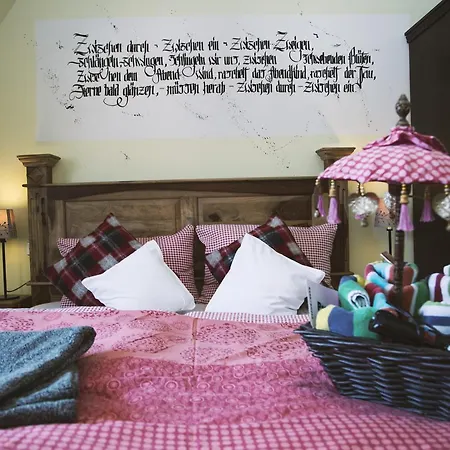 Zwischen durch - Zwischen ein - Zwischen Zweigen,
schlängeln, schwingen, schlingeln wir uns, zwischen schwebenden Blüten,
Zwischen dem Abend Wind, raschelt das Abendkleid, raschelt der Tau,
Sterne bald glänzen, - herab - Zwischen durch - Zwischen ein